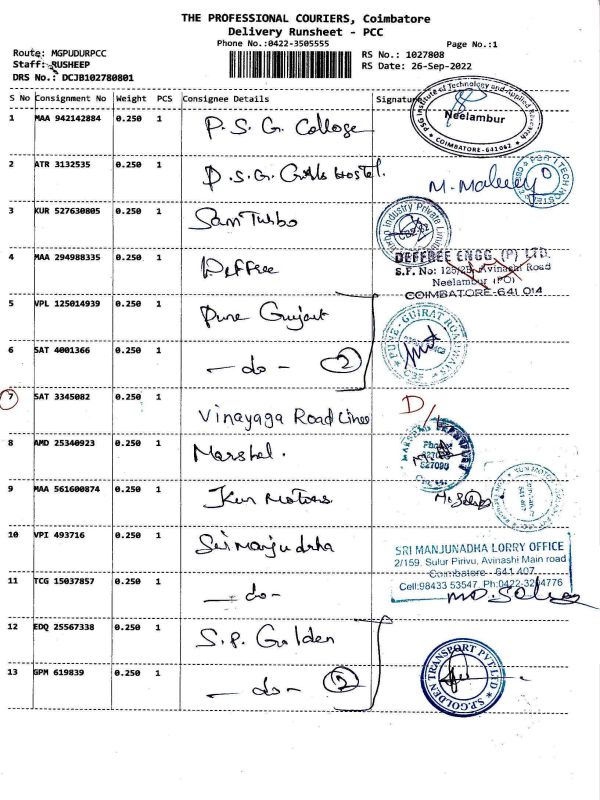 THE PROFESSIONAL COURIERS, Coimbatore
Delivery Runsheet - PCC
Phone No.:0422-3505555
Page No.:1
Route: MGPUDURPCC
RS No.: 1027808
Staff: RUSHEEP
RS Date: 26-Sep-2022
DRS No.: DCJB102780801
S No Consignment No Weight PCS Consignee Details Signature
1 MAA 942142884 0.250 1 P.S.G. College
PSG Institute of Technology and Applied Research
Neelambur
COIMBATORE-641062
2 ATR 3132535 0.250 1 P.S.G. Girls Hostel.
3 KUR 527630805 0.250 1 Sam Turbo
Industry Private Limited
4 MAA 294988335 0.250 1 Deffree
DEFFREE ENGG. (P) LTD.
S.F. No: 125/2B, Avinashi Road
Neelambur (PO)
COIMBATORE-641 014
5 VPL 125014939 0.250 1 Pune Gujarat
PUNE - GUJRAT ROADWAYS
CBE
6 SAT 4001366 0.250 1 - do - 2
7 SAT 3345082 0.250 1 Vinayaga Road Lines D/
8 AMD 25340923 0.250 1 Marshal.
9 MAA 561600874 0.250 1 Kun Motors
KUN MOTOR
10 VPI 493716 0.250 1 Sri Manjudha
SRI MANJUNADHA LORRY OFFICE
2/159, Sulur Pirivu, Avinashi Main road
Coimbatore - 641 407
Cell:98433 53547, Ph:0422-3204776
11 TCG 15037857 0.250 1 - do -
12 EDQ 25567338 0.250 1 S.P. Golden
13 GPM 619839 0.250 1 - do - 2
S.P.GOLDEN TRANSPORT PVT LTD